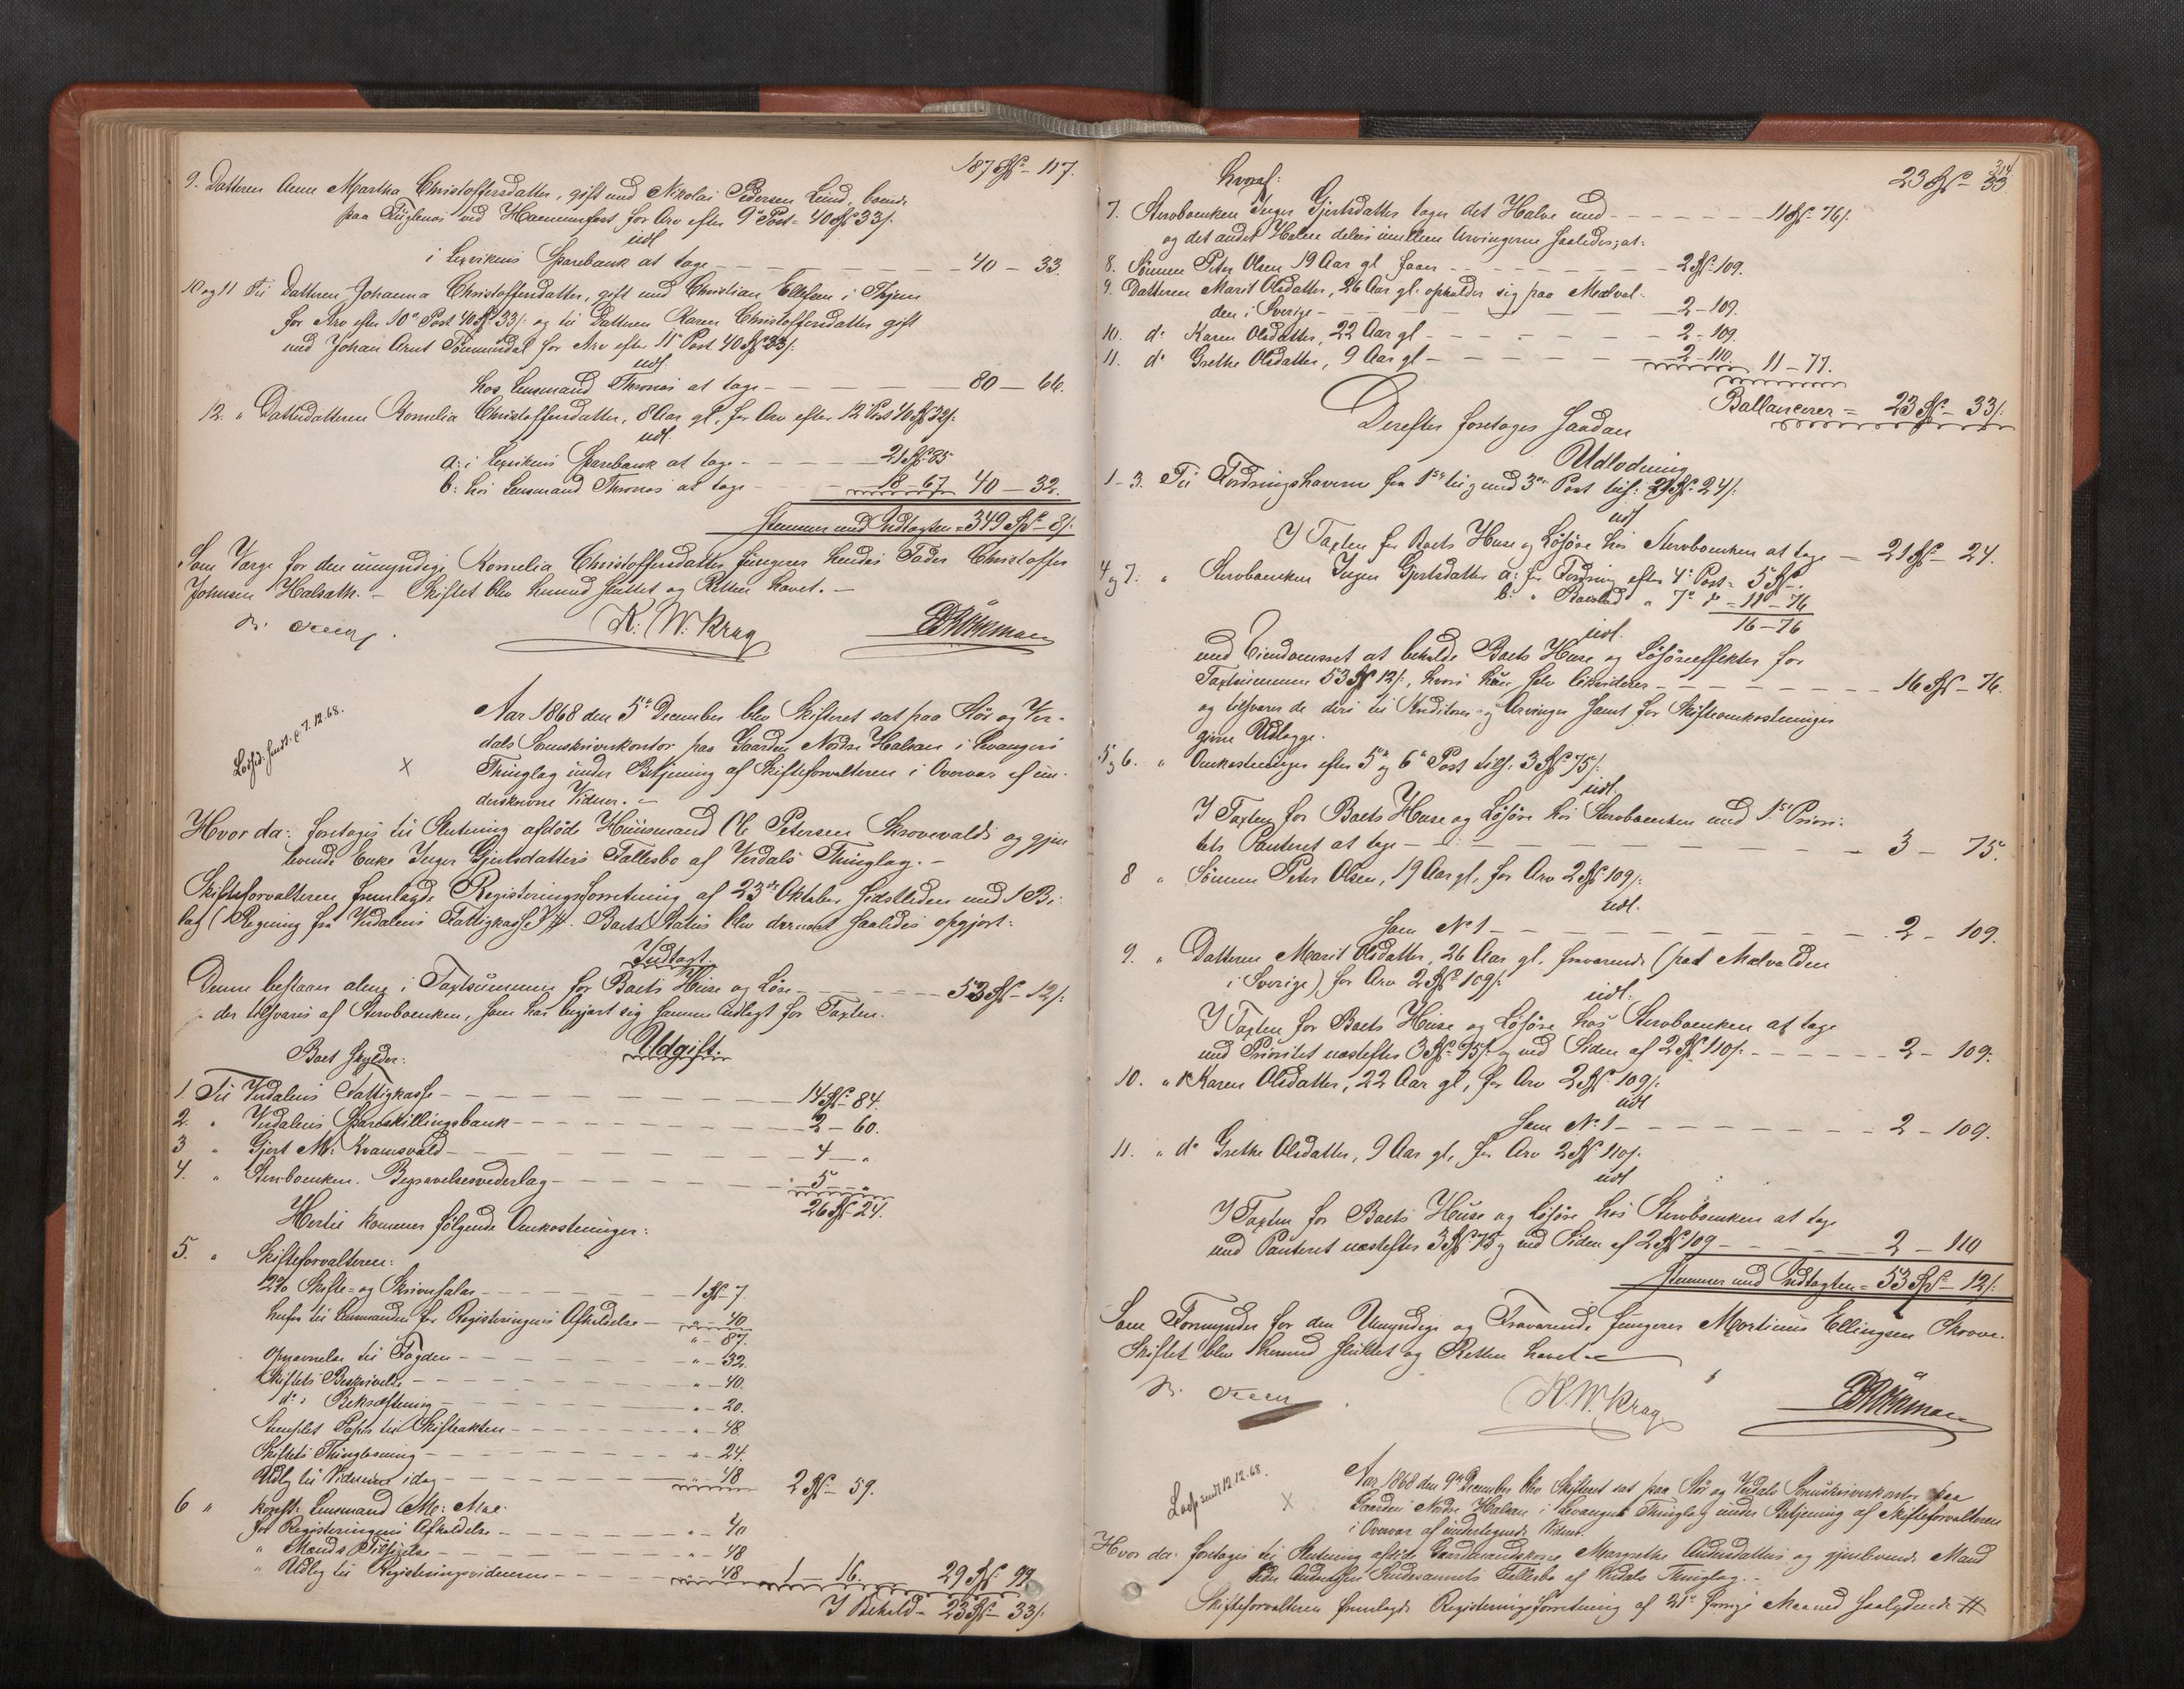 187 Spd - 117.
9. Datteren Anne Martha Christoffersdatter, gift med Nikolai Pedersen Lund, boende
paa Fuglenes ved Hammerfest for Arv efter 9de Post - 40 Spd 33/.
udl
i Lexvikens Sparebank at tage - 40 - 33.
10 og 11 Til Datteren Johanna Christoffersdatter, gift med Christian Ellefsen i
for Arv efter 10de Post 40 Spd 33/. og til Datteren Karen Christoffersdatter gift
med Johan Arnt for Arv efter 11te Post 40 Spd 33/.
udl
hos Lensmand Thronæs at tage - 80 - 66.
12. " Datterdatteren Kornelia Christoffersdatter, 8 Aar gl. for Arv efter 12te Post 40 Spd 32/.
udl.
a: i Lexvikens Sparebank at tage - 21 Spd 85
b: hos Lensmand Thronæs at tage - 18 - 67 40 - 32.
Stemmer med Indtægten = 349 Spd - 8/.
Som Værge for den umyndige Kornelia Christoffersdatter fungerer hendes Fader Christoffer
Johnsen Halsath. - Skiftet blev hermed sluttet og Retten hævet. -
K. W. Krag
Aar 1868 den 5te December blev Skifteret sat paa Stør og Ver-
dals Sorenskriverkontor paa Gaarden Nordre Halsan i Levangers
Thinglag under Betjening af Skifteforvalteren i Overvær af un-
derskrevne Vidner. -
7.12.68.
Hvor da: foretoges til Slutning afdøde Huusmand Ole Petersen Skrovevalds og gjen
levende Enke Inger Gjertsdatters Fællesbo af Verdals Thinglag. -
Skifteforvalteren fremlagde Registreringsforretning af 23de Oktober sidstleden med 1 Bi-
lag (Regning fra Verdalens Fattigkasse) #. Boets Status blev dernæst saaledes opgjort:
Indtægt.
Denne bestaar alene i Taxtsummen for Boets Huse og Løse - 53 Spd - 12/.
der tilsvares af Stervboenken, som har begjært sig samme udlagt for Taxten.
Boet skylder: Udgift.
1. Til Verdalens Fattigkasse - 14 Spd - 84.
2. " Verdalens Spareskillingsbank - 2 - 60.
3 " Gjert M: Kvamsvald - 4 - "
4. " Stervboenken. Begravelsesvederlag - 5 - "
26 Spd - 24.
Hertil kommer følgende Omkostninger:
5. " Skifteforvalteren:
2% Skifte- og Skriversalær - 1 Spd - 7.
heraf til Lensmanden for Registreringens Afholdelse - " - 40
" - 87.
Opnævnelse til Fogden - " - 32.
Skiftets Beskrivelse - " - 40.
do: Bekræftning - " - 20.
Stemplet Papir til Skifteakten - " - 48.
Skiftets Thinglæsning - " - 24.
Udlæg til Vidnerne idag - " - 48 2 Spd - 59.
6 " konst: Lensmand M: Moe:
for Registreringens Afholdelse - " - 40
" Mænds Tilsigelse - " - 48
" Udlæg til Registreringsvidnerne - " - 48 1 - 16. 29 Spd - 99
I Behold - 23 Spd - 33/.
314
Hvoraf: 23 Spd - 33
7. Stervboenken Inger Gjertsdatter tager det Halve med - 11 Spd - 76/.
og det andet Halve deles imellem Arvingerne saaledes, at:
8. Sønnen Peter Olsen 19 Aar gl faaer - 2 Spd - 109.
9. Datteren Marit Olsdatter, 26 Aar gl. opholder sig paa Mælval-
den i Sverige - 2 - 109.
10. do Karen Olsdatter, 22 Aar gl - 2 - 109.
11. do Grethe Olsdatter, 9 Aar gl - 2 - 110. 11 - 77.
Ballancerer = 23 Spd - 33/.
Derefter foretages saadan
Udlodning
1-3. Til Fordringshaverne fra 1ste til og med 3die Post tils: 21 Spd 24/.
udl
I Taxten for Boets Huse og Løsøre hos Stervboenken at tage - 21 Spd - 24.
4 og 7. " Stervboenken Inger Gjertsdatter a: for Fordring efter 4de Post - 5 Spd -
b: " Boeslod " 7de do - 11 - 76
16 - 76
udl.
med Eiendomsret at beholde Boets Huse og Løsøreeffekter for
Taxtsummen 53 Spd 12/., hvori hun selv likviderer - 16 Spd - 76.
og tilsvarer de deri til Kreditorer og Arvinger samt for Skifteomkostninger
gjorte Udlægge.
5 og 6. " Omkostninger efter 5te og 6te Post tils: 3 Spd 75/.
udl.
I Taxten for Boets Huse og Løsøre hos Stervboenken med 1ste Priori-
tets Panteret at tage - 3 - 75.
8 " Sønnen Peter Olsen, 19 Aar gl, for Arv 2 Spd 109/.
udl.
Som No 1 - 2 - 109.
9. " Datteren Marit Olsdatter, 26 Aar gl, fraværende (paa Mælvalden
i Sverige) for Arv 2 Spd 109/.
udl.
I Taxten for Boets Huse og Løsøre hos Stervboenken at tage
med Prioritet næstefter 3 Spd 75/. og ved Siden af 2 Spd 110/. - 2 - 109.
10. " do Karen Olsdatter, 22 Aar gl, for Arv 2 Spd 109/.
udl
Som No 1 - 2 - 109.
11. " do Grethe Olsdatter, 9 Aar gl, for Arv 2 Spd 110/.
udl
I Taxten for Boets Huse og Løsøre hos Stervboenken at tage
med Panteret næstefter 3 Spd 75 og ved Siden af 2 Spd 109 - 2 - 110
Stemmer med Indtægten = 53 Spd - 12/.
Som Formynder for den Umyndige og Fraværende fungerer Mortinus Ellingsen Skrove.
Skiftet blev hermed sluttet og Retten hævet. -
K. W. Krag
12.12.68.
Aar 1868 den 9de December blev Skifteret sat paa Stør og Verdals Sorenskriverkontor paa
Gaarden Nordre Halsan i Levangers Thinglag under Betjening af Skifteforvalteren
i Overvær af undertegnede Vidner.
Hvor da: foretoges til Slutning afdøde Gaardmandskone Margrethe Andersdatters og gjenlevende Mand
Peder Fællesbo af Verdals Thinglag. -
Skifteforvalteren fremlagde Registreringsforretning af 21de forrige Maaned saalydende #